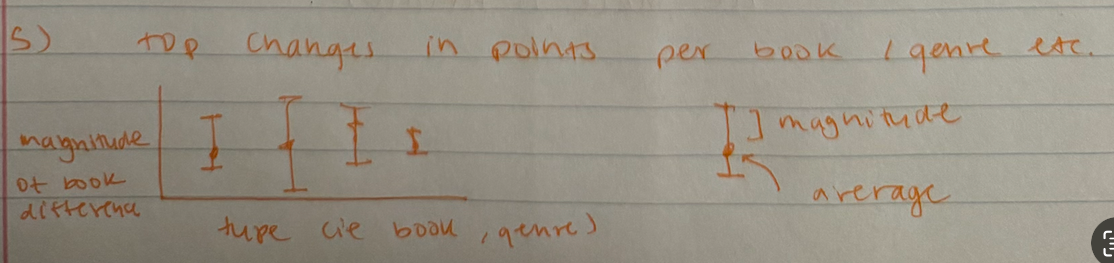 5) top changes in points per book / genre etc.
magnitude
of book
difference
type (ie book, genre)
] magnitude
average